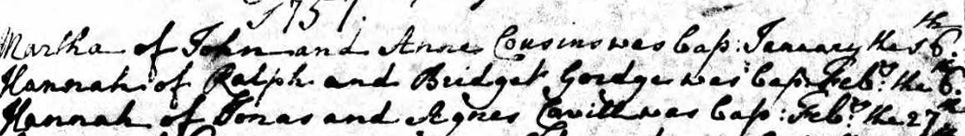 1757.
Martha of John and Anne Cousins was bap: January the 16th.
Hannah of Ralph and Bridget Gordge was bap: Feb.ry the 6th
Hannah of Jonas and Agnes Cavill was bap: Feb.ry the 27th